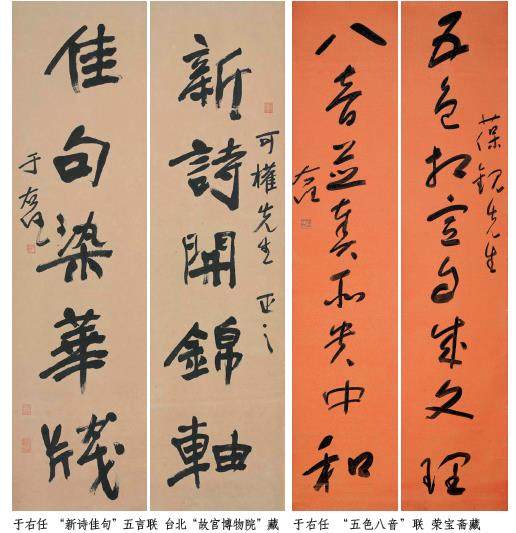 新詩開錦軸
可權先生 正之
佳句染華牋
于右任
五色相宣自成文理
先生
八音並奏所貴中和
右任
于右任 “新诗佳句”五言联 台北“故宫博物院”藏
于右任 “五色八音”联 荣宝斋藏